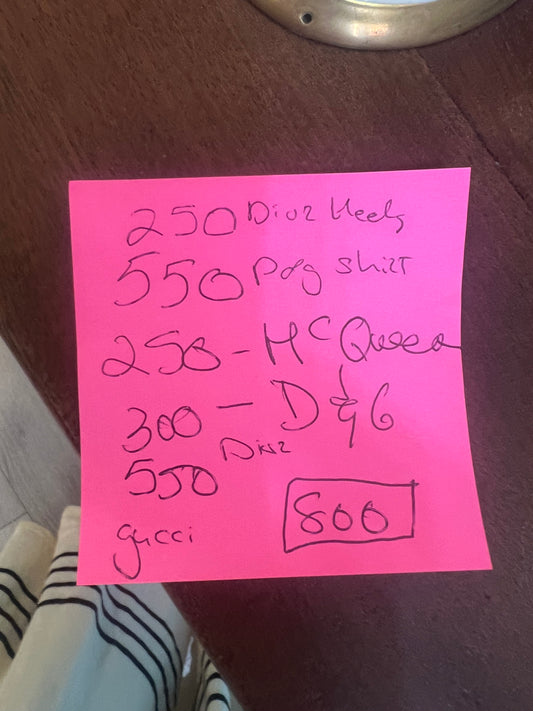 250 Dior Heels
550 D&g shirt
250 - McQueen
300 - D & G
550 Dior
gucci
800